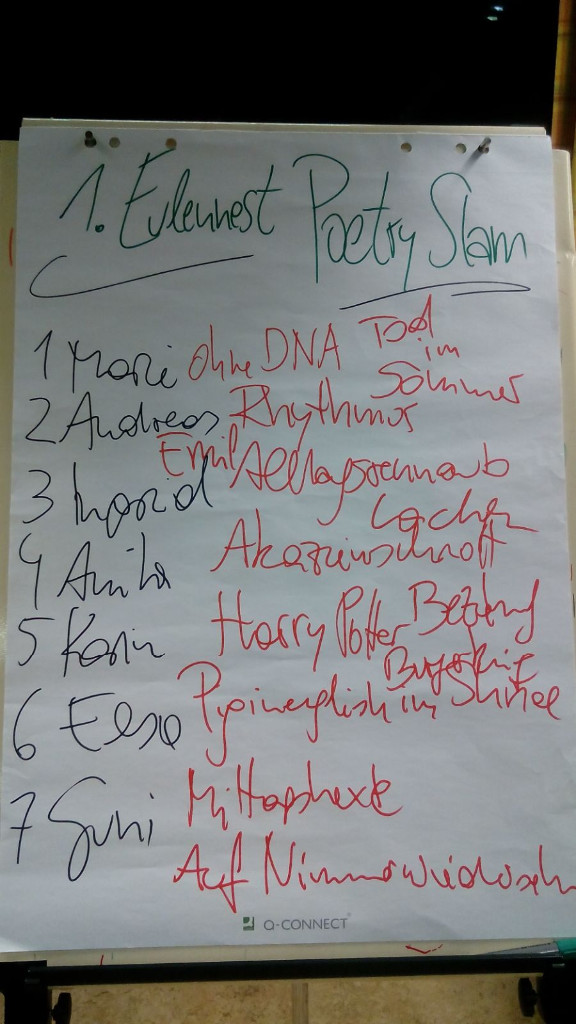 1. Eulennest Poetry Slam
1 Marie ohne DNA Tod im Sommer
2 Andreas Rhythmus
3 Ingrid Emil Alltagsrennab Lachen
4 Anita Akazienschrott
5 Karin Harry Potter Betrug
6 Elsa Pyginenglish im Schnee
7 Suni Mittagshexe
Auf Nimmerwiedersehn
Q-CONNECT